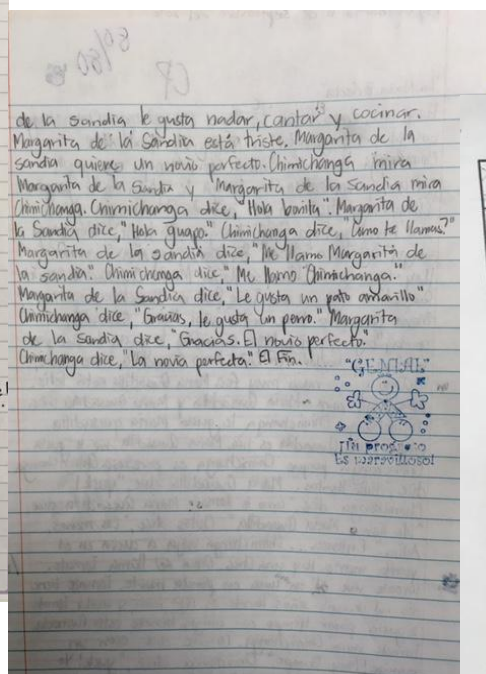 de la sandia le gusta nadar, cantar y cocinar.
Margarita de la Sandia está triste. Margarita de la
sandia quiere un novio perfecto. Chimichanga mira
Margarita de la Sandia y Margarita de la sandia mira
Chimichanga. Chimichanga dice, "Hola bonita". Margarita de
la Sandia dice, "Hola guapo." Chimichanga dice, Como te llamas?"
Margarita de la sandia dice, "Me llamo Margarita de
la sandia" Chimichanga dice, "Me llamo Chimichanga."
Margarita de la Sandia dice, "Le gusta un pato amarillo"
Chimichanga dice, "Gracias, le gusta un perro." Margarita
de la Sandia dice, "Gracias. El novio perfecto."
Chimichanga dice, "La novia perfecta." El Fin.
"GENIAL"
¡Tu progreso
Es maravilloso!